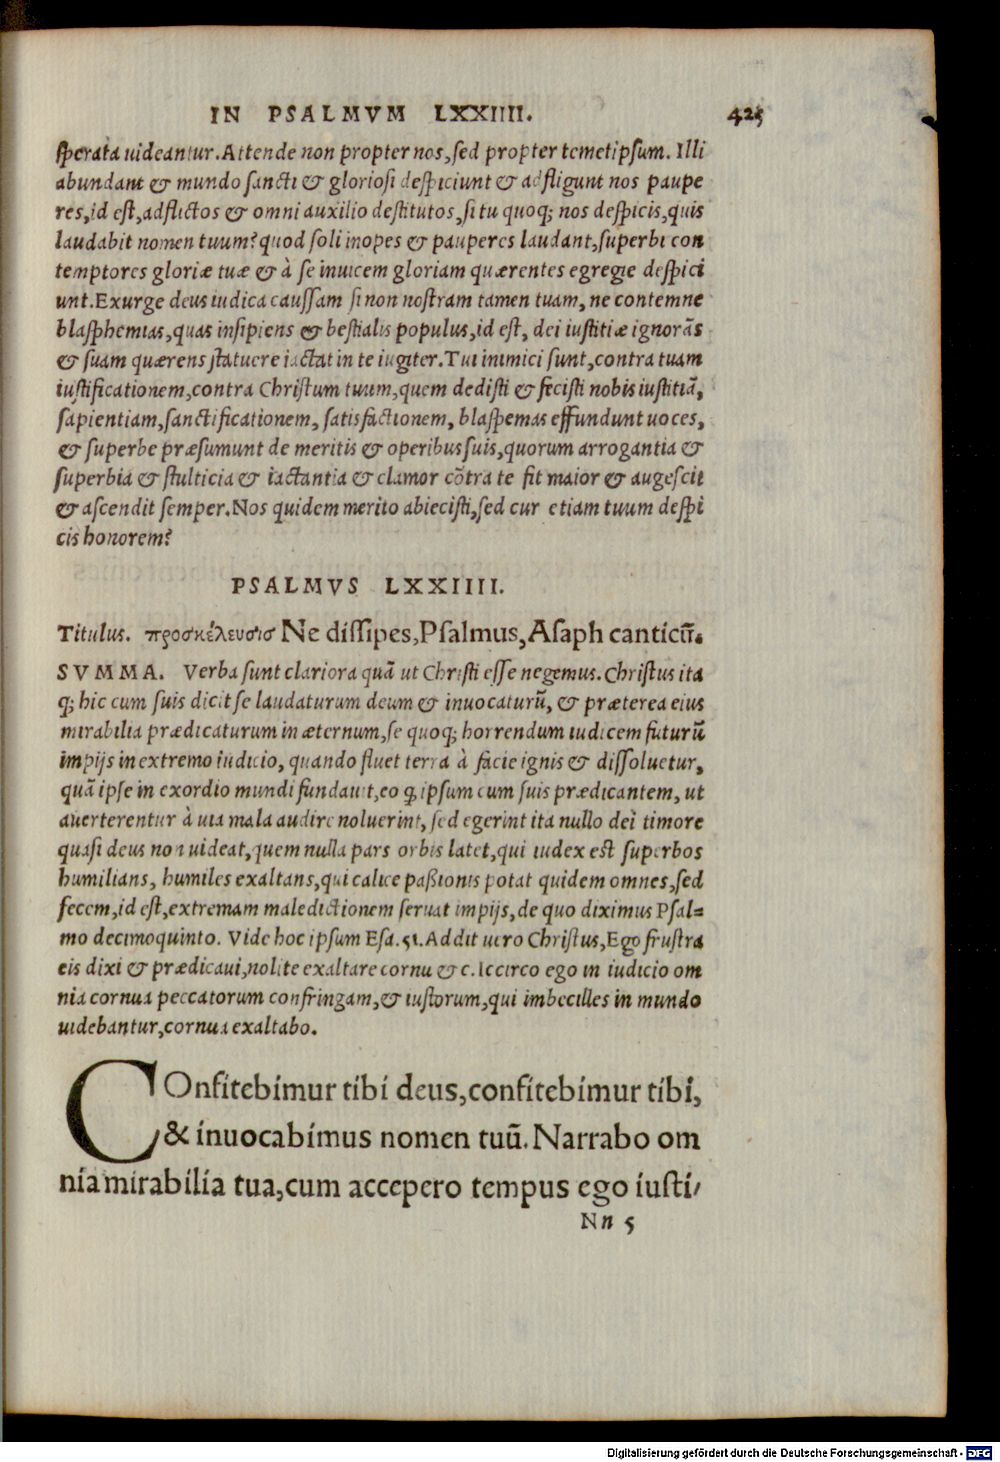 IN PSALMVM LXXIIII. 425
sperata uideantur. Attende non propter nos, sed propter temetipsum. Illi
abundant & mundo sancti & gloriosi despiciunt & adfligunt nos paupe
res, id est, adflictos & omni auxilio destitutos, si tu quoq; nos despicis, quis
laudabit nomen tuum? quod soli inopes & pauperes laudant, superbi con
temptores gloriæ tuæ & à se inuicem gloriam quærentes egregie despici
unt. Exurge deus iudica caussam si non nostram tamen tuam, ne contemne
blasphemias, quas insipiens & bestialis populus, id est, dei iustitiæ ignorãs
& suam quærens statuere iactat in te iugiter. Tui inimici sunt, contra tuam
iustificationem, contra Christum tuum, quem dedisti & fecisti nobis iustitiã,
sapientiam, sanctificationem, satisfactionem, blaspemas effundunt uoces,
& superbe præsumunt de meritis & operibus suis, quorum arrogantia &
superbia & stulticia & iactantia & clamor cõtra te fit maior & augescit
& ascendit semper. Nos quidem merito abiecisti, sed cur etiam tuum despi
cis honorem?
PSALMVS LXXIIII.
Titulus. προσκέλευσις Ne dissipes, Psalmus, Asaph canticũ.
SVMMA. Verba sunt clariora quã ut Christi esse negemus. Christus ita
q; hic cum suis dicit se laudaturum deum & inuocaturũ, & præterea eius
mirabilia prædicaturum in æternum, se quoq; horrendum iudicem futurũ
impijs in extremo iudicio, quando fluet terra à facie ignis & dissoluetur,
quã ipse in exordio mundi fundauit, eo q̃ ipsum cum suis prædicantem, ut
auerterentur à uia mala audire noluerint, sed egerint ita nullo dei timore
quasi deus non uideat, quem nulla pars orbis latet, qui iudex est superbos
humilians, humiles exaltans, qui calice paßionis potat quidem omnes, sed
fecem, id est, extremam maledictionem seruat impijs, de quo diximus Psal=
mo decimoquinto. Vide hoc ipsum Esa. 51. Addit uero Christus, Ego frustra
eis dixi & prædicaui, nolite exaltare cornu & c. Iccirco ego in iudicio om
nia cornua peccatorum confringam, & iustorum, qui imbecilles in mundo
uidebantur, cornua exaltabo.
COnfitebimur tibi deus, confitebimur tibi,
& inuocabimus nomen tuũ. Narrabo om
nia mirabilia tua, cum accepero tempus ego iusti/
Nn 5
Digitalisierung gefördert durch die Deutsche Forschungsgemeinschaft - DFG